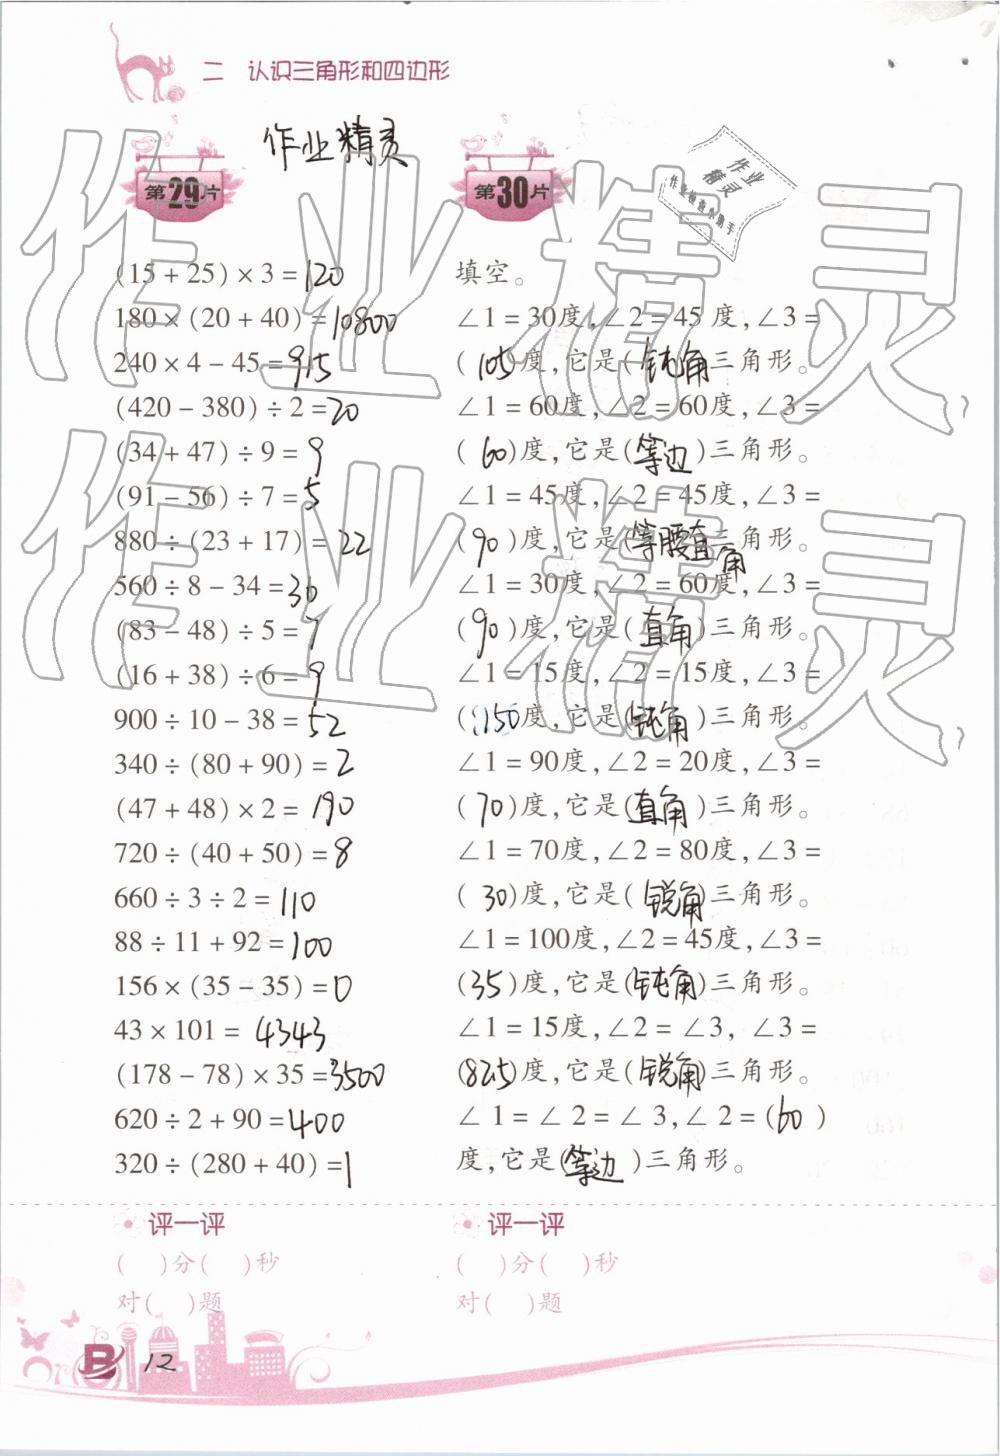 二 认识三角形和四边形
作业精灵
第29片
(15 + 25) × 3 = 120
180 × (20 + 40) = 10800
240 × 4 - 45 = 915
(420 - 380) ÷ 2 = 20
(34 + 47) ÷ 9 = 9
(91 - 56) ÷ 7 = 5
880 ÷ (23 + 17) = 22
560 ÷ 8 - 34 = 30
(83 - 48) ÷ 5 = 7
(16 + 38) ÷ 6 = 9
900 ÷ 10 - 38 = 52
340 ÷ (80 + 90) = 2
(47 + 48) × 2 = 190
720 ÷ (40 + 50) = 8
660 ÷ 3 ÷ 2 = 110
88 ÷ 11 + 92 = 100
156 × (35 - 35) = 0
43 × 101 = 4343
(178 - 78) × 35 = 3500
620 ÷ 2 + 90 = 400
320 ÷ (280 + 40) = 1
评一评
( )分( )秒
对( )题
第30片
作业
精灵
作业检查小助手
填空。
∠1 = 30度,∠2 = 45 度,∠3 =
(105)度,它是(钝角)三角形。
∠1 = 60度,∠2 = 60度,∠3 =
(60)度,它是(等边)三角形。
∠1 = 45度,∠2 = 45度,∠3 =
(90)度,它是(等腰直角)三角形。
∠1 = 30度,∠2 = 60度,∠3 =
(90)度,它是(直角)三角形。
∠1 = 15度,∠2 = 15度,∠3 =
(150)度,它是(钝角)三角形。
∠1 = 90度,∠2 = 20度,∠3 =
(70)度,它是(直角)三角形。
∠1 = 70度,∠2 = 80度,∠3 =
(30)度,它是(锐角)三角形。
∠1 = 100度,∠2 = 45度,∠3 =
(35)度,它是(钝角)三角形。
∠1 = 15度,∠2 = ∠3, ∠3 =
(82.5)度,它是(锐角)三角形。
∠1 = ∠2 = ∠3,∠2 = (60)
度,它是(等边)三角形。
评一评
( )分( )秒
对( )题
B 12
作业精灵
作业精灵